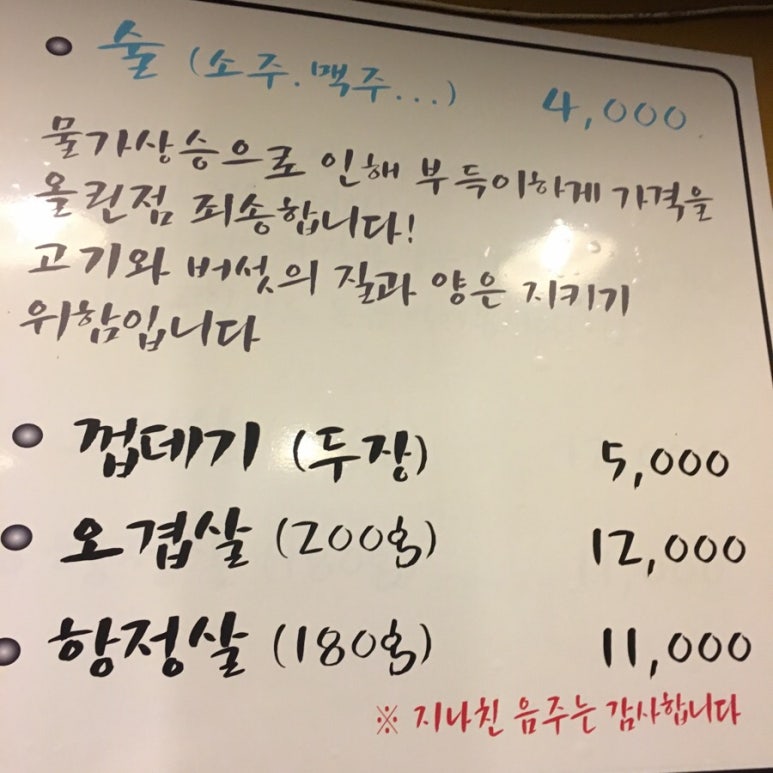 • 술 (소주.맥주...) 4,000
물가상승으로 인해 부득이하게 가격을
올린점 죄송합니다!
고기와 버섯의 질과 양은 지키기
위함입니다
• 껍데기 (두장) 5,000
• 오겹살 (200g) 12,000
• 항정살 (180g) 11,000
※ 지나친 음주는 감사합니다